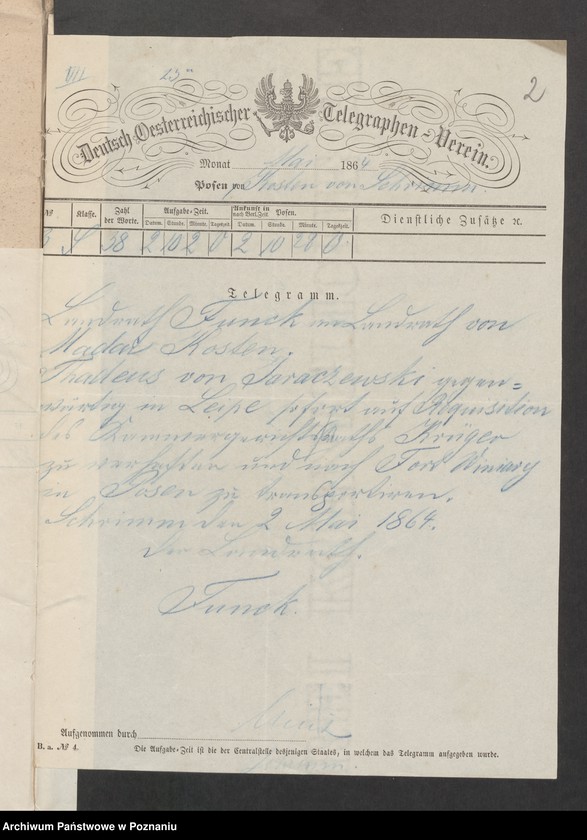 VII
23
2
Deutsch-Oesterreichischer Telegraphen-Verein.
Monat Mai 1864
Posen von Kosten von Schrimm.
№ Klasse. Zahl der Worte. Aufgabe-Zeit. Ankunft in Posen. nach Berl. Zeit Dienstliche Zusätze ꝛc.
Datum. Stunde. Minute. Tageszeit Datum. Stunde. Minute. Tageszeit.
S 38 2 10 2 0 2 10 20
Telegramm.
Landrath Funck an Landrath von
Madai Kosten.
Thadeus von Jaraczewski gegen=
wärtig in Leipe sofort auf Requisition
des Kammergerichtsraths Krüger
zu verhaften und nach Fort Winiary
in Posen zu transportiren.
Schrimm den 2 Mai 1864.
Der Landrath.
Funck.
Aufgenommen durch
B. a. № 4. Die Aufgabe-Zeit ist die der Centralstelle desjenigen Staates, in welchem das Telegramm aufgegeben wurde.
Archiwum Państwowe w Poznaniu